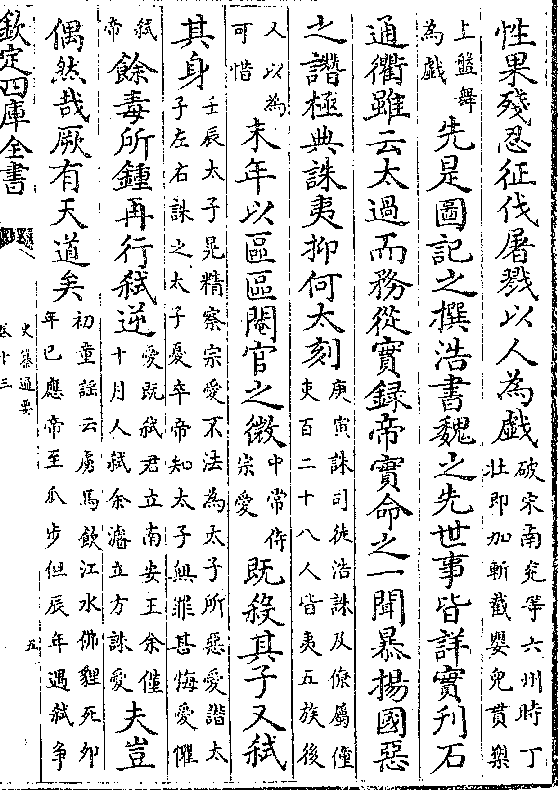 性果殘忍征伐屠戮以人為戲破宋南兗等六州時丁壯即加斬截嬰兒貫槊
上盤舞為戲先是圖記之撰浩書魏之先世事皆詳實刋石
通衢雖云太過而務從實録帝實命之一聞暴揚國惡
之譖極典誅夷抑何太刻庚寅誅司徒浩誅及僚屬僮吏百二十八人皆夷五族後
人以為可惜末年以區區閹官之微中常侍宗愛既殺其子又弑
其身壬辰太子晃精察宗愛不法為太子所惡愛譖太子左右誅之太子憂卒帝知太子無罪甚悔愛懼
弑帝餘毒所鍾再行弑逆愛既弑君立南安王余僅十月人弑余濬立方誅愛夫豈
偶然哉厥有天道矣初童謡云虜馬飲江水佛貍死卯年已應帝至瓜步但辰年遇弑爭
欽定四庫全書
史纂通要
卷十三
五